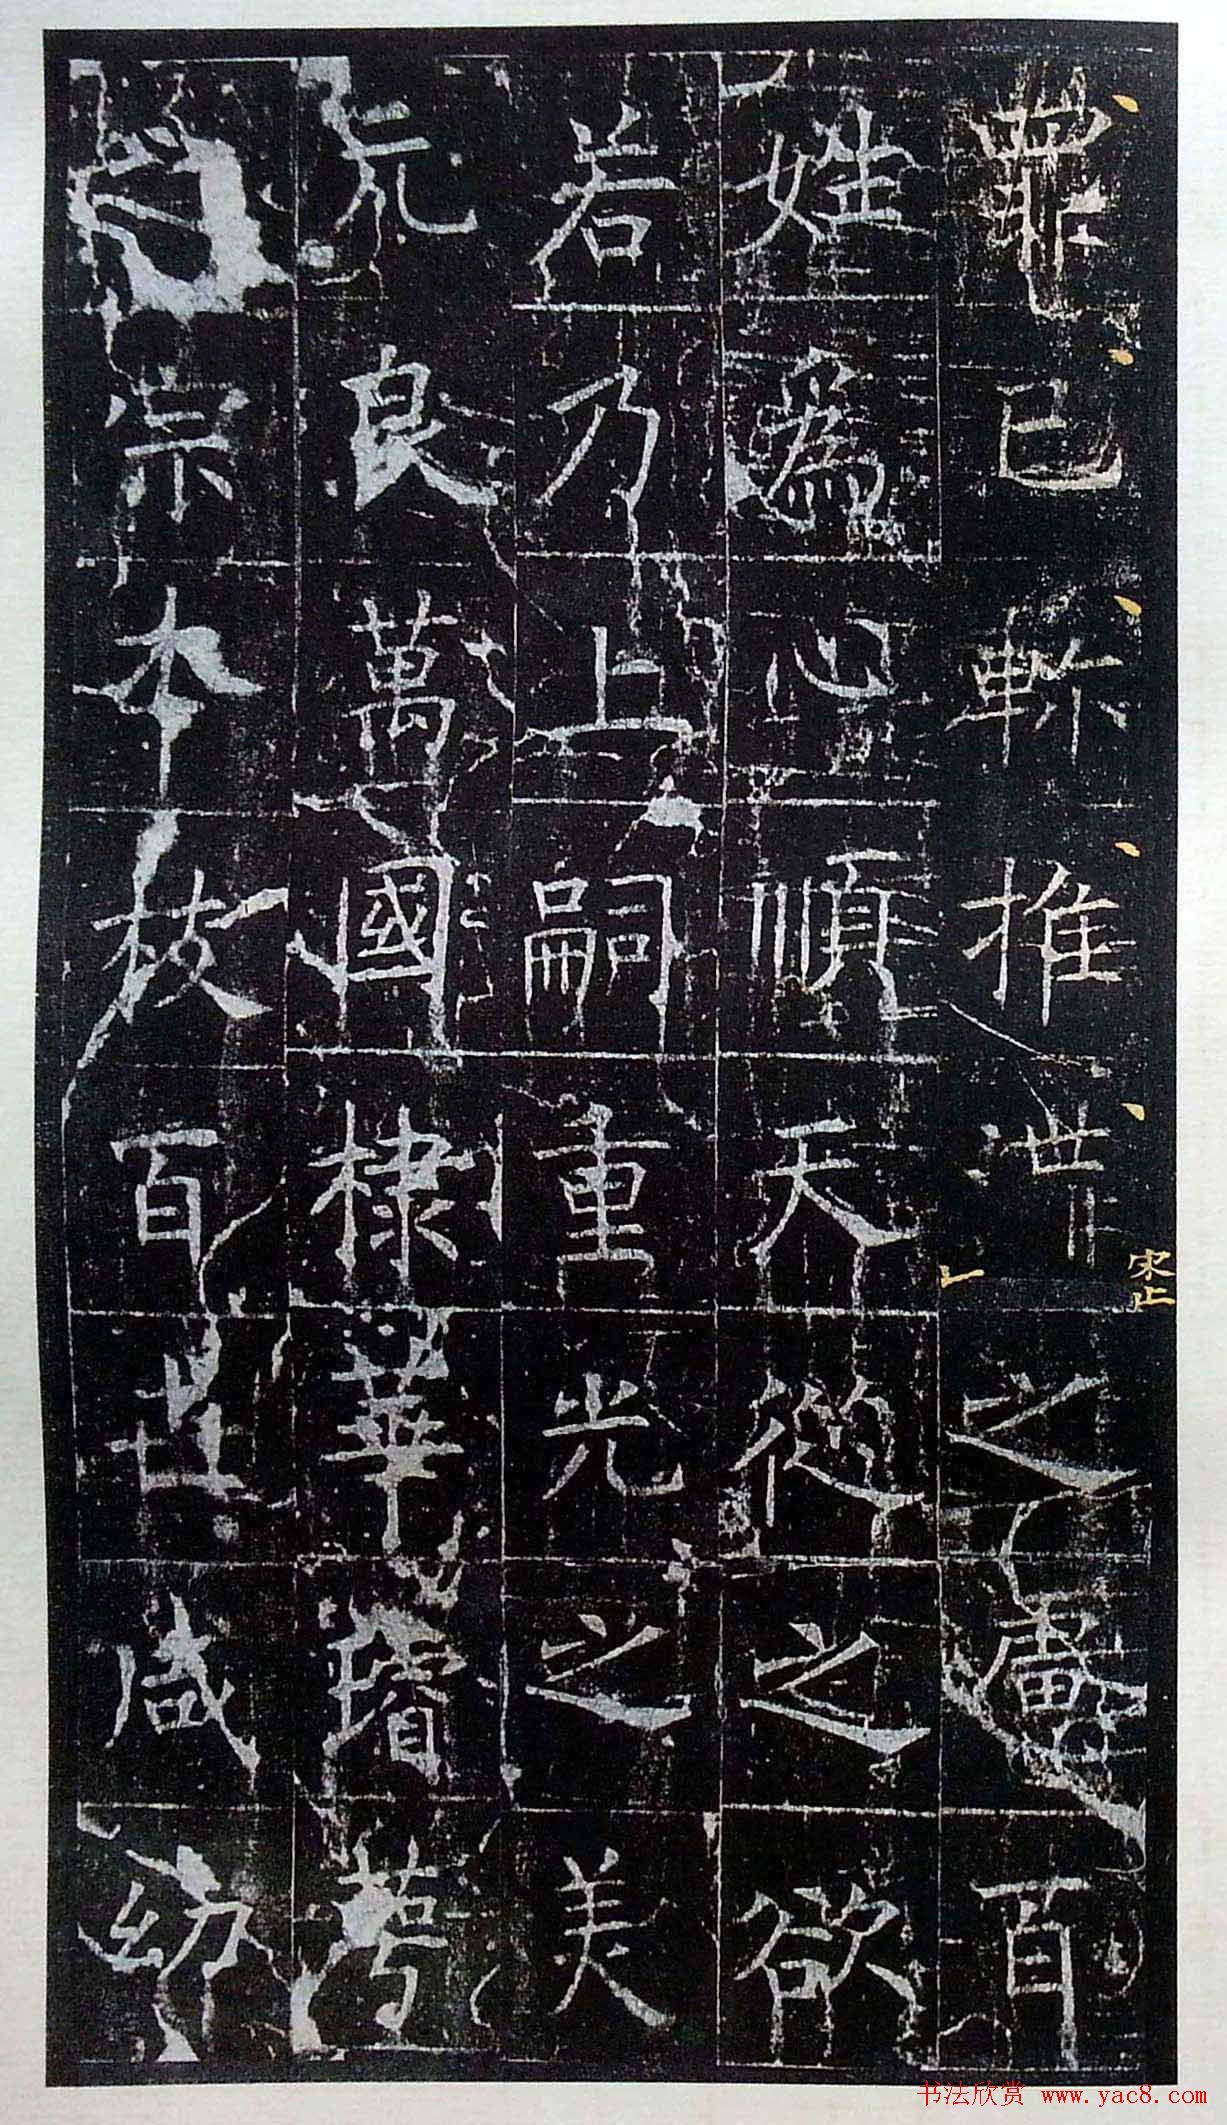 罪己軫推溝之慮百
姓爲心順天從之欲
若乃上嗣重光之美
元良萬國棣華璿萼
宗本枝百世咸幼
宋止
书法欣赏 www.yac8.com